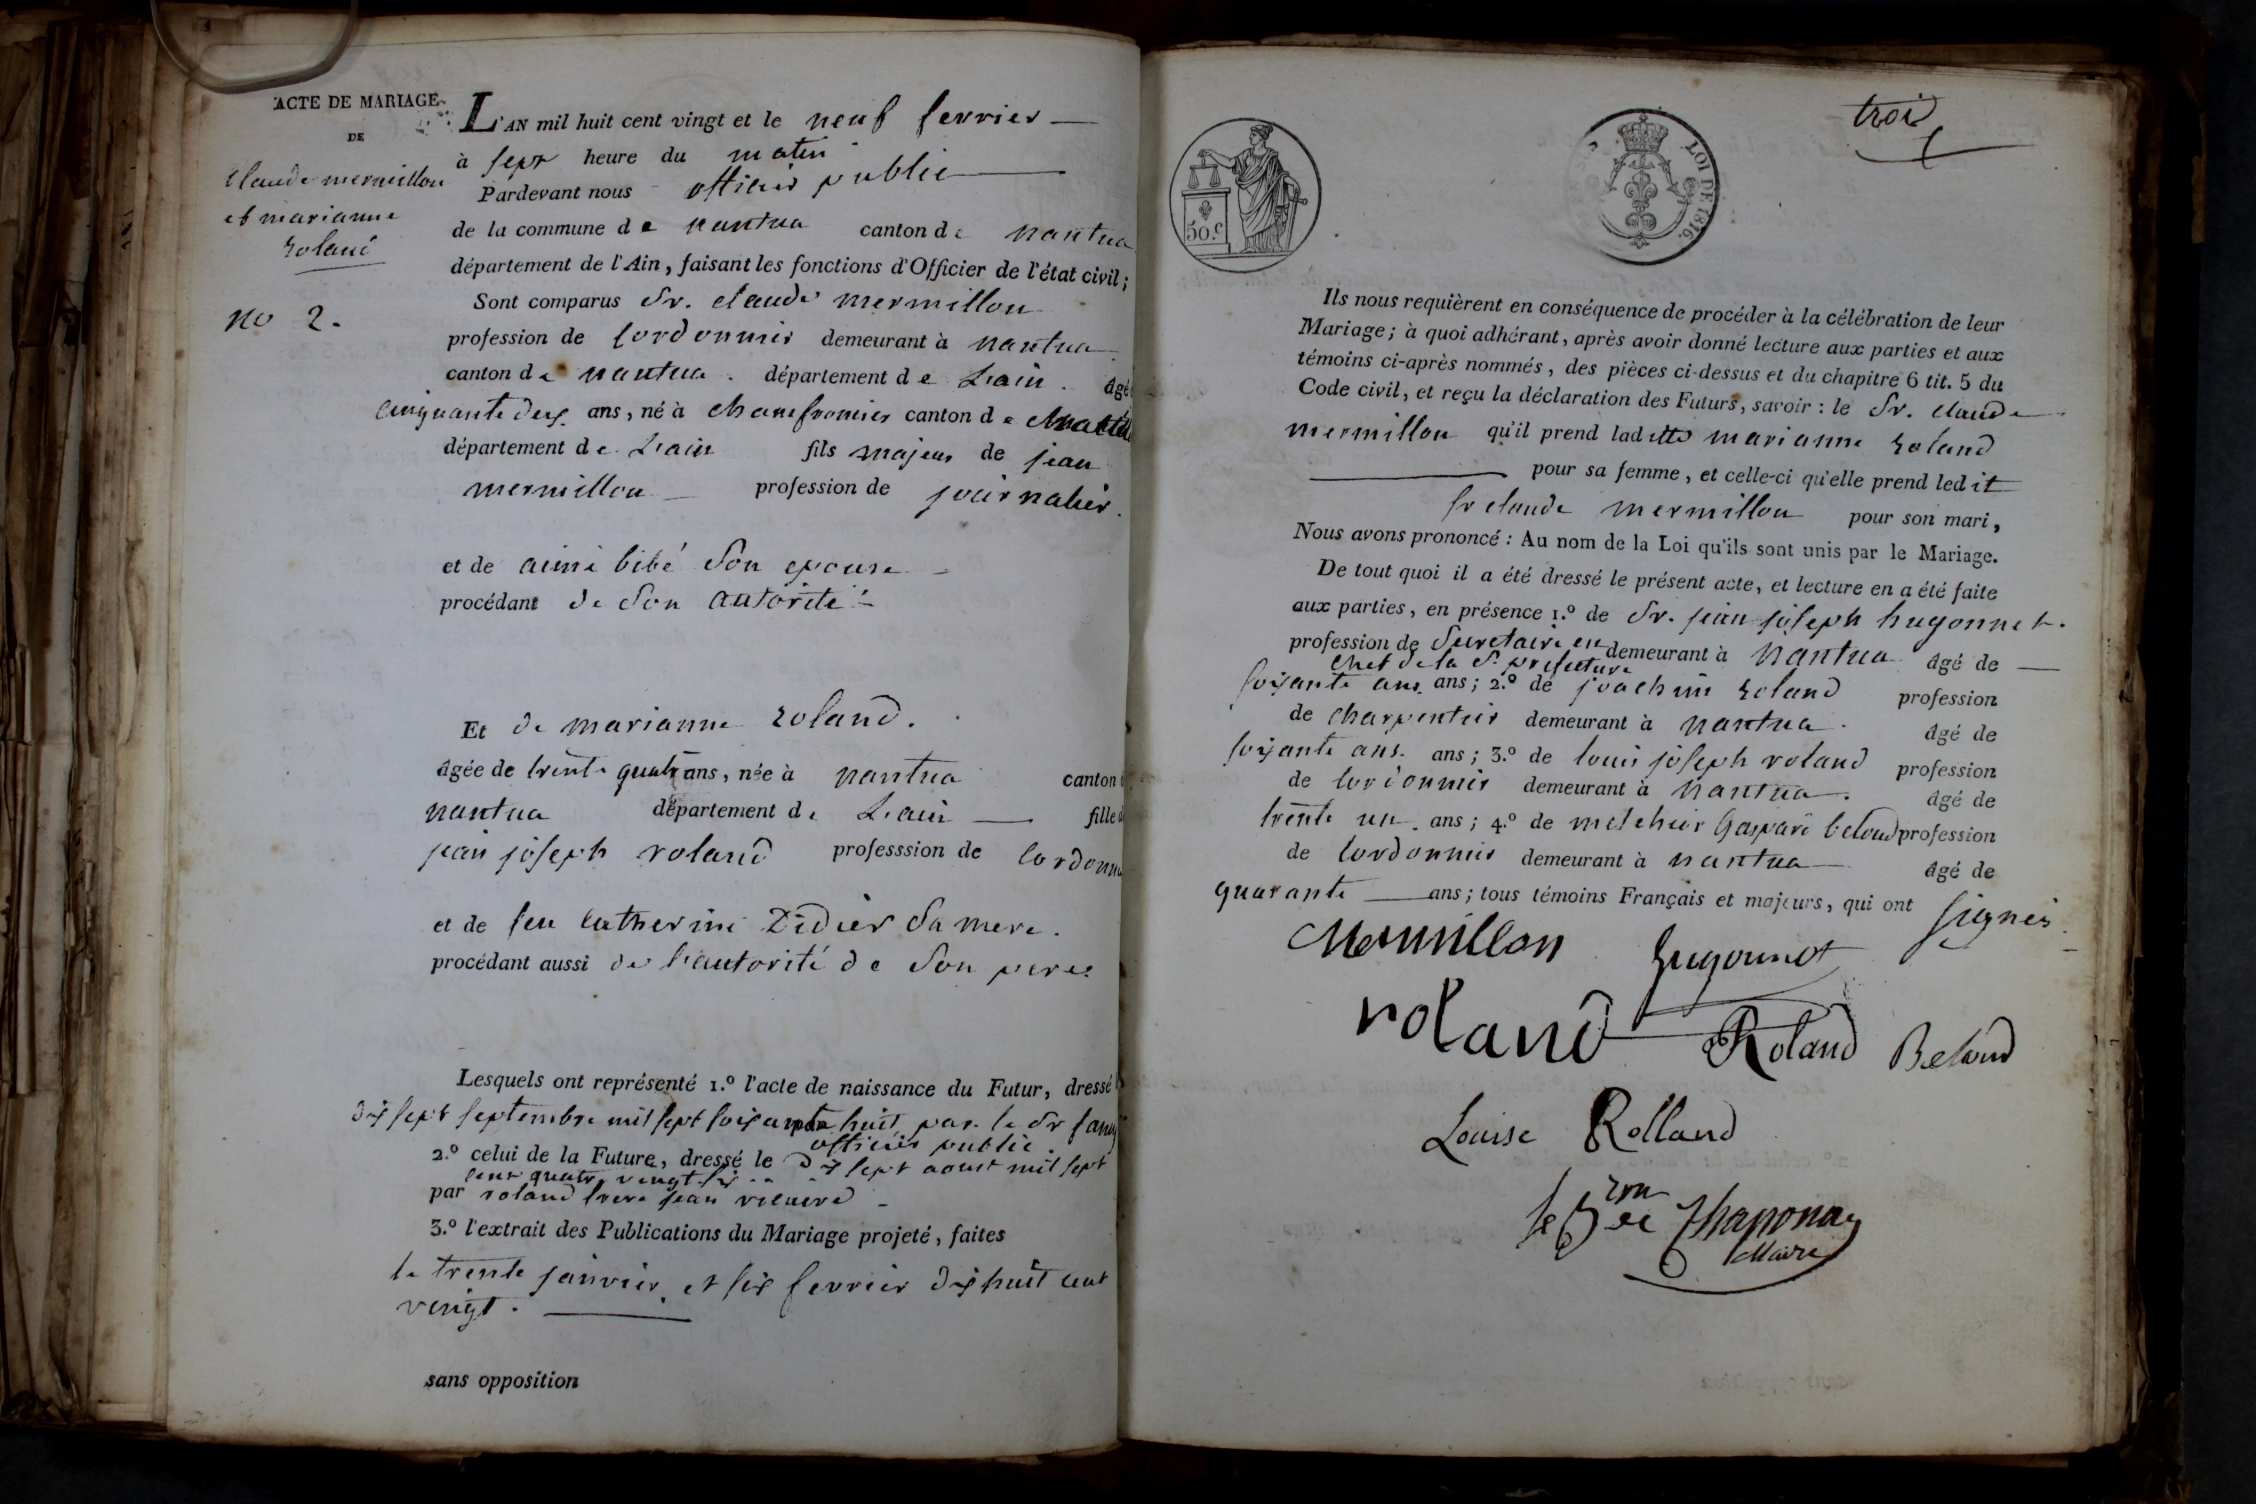 ACTE DE MARIAGE
DE
Claude mermillon
et marianne
roland
no 2.
L'AN mil huit cent vingt et le neuf fevrier
à sept heure du matin
Pardevant nous officier public
de la commune de nantua canton de nantua
département de l'Ain, faisant les fonctions d'Officier de l'état civil;
Sont comparus Sr. claude mermillon
profession de cordonnier demeurant à nantua
canton de nantua. département de L'ain. âgé
cinquante deux ans, né à chamfromier canton de
département de L'ain fils majeur de jean
mermillon profession de journalier.
et de aimé bibé son epouse
procédant de son autorité
Et de marianne roland.
âgée de trente quatre ans, née à nantua canton
nantua département de L'ain fille
jean joseph roland professsion de cordonn
et de feu catherine Didier sa mere.
procédant aussi de l'autorité de son pere
Lesquels ont représenté 1.º l'acte de naissance du Futur, dressé
dix sept septembre mil sept soixante huit par le Sr
officier public.
2.º celui de la Future, dressé le dix sept aoust mil sept
cent quatre vingt six
par roland frere jean vicaire
3.º l'extrait des Publications du Mariage projeté, faites
le trente janvier et six fevrier dix huit cent
vingt.
sans opposition
trois
50.c
LOI DE 1816.
Ils nous requièrent en conséquence de procéder à la célébration de leur
Mariage; à quoi adhérant, après avoir donné lecture aux parties et aux
témoins ci-après nommés, des pièces ci-dessus et du chapitre 6 tit. 5 du
Code civil, et reçu la déclaration des Futurs, savoir: le Sr. claude
mermillon qu'il prend ladette marianne roland
pour sa femme, et celle-ci qu'elle prend ledit
sr claude mermillon pour son mari,
Nous avons prononcé: Au nom de la Loi qu'ils sont unis par le Mariage.
De tout quoi il a été dressé le présent acte, et lecture en a été faite
aux parties, en présence 1.º de Sr. jean joseph hugonnet.
profession de Secretaire en demeurant à Nantua âgé de
chef de la S. prefecture
soixante ans ans; 2.º de joachim roland profession
de charpentier demeurant à nantua. âgé de
soixante ans. ans; 3.º de louis joseph roland profession
de cordonnier demeurant à Nantua. âgé de
trente un. ans; 4.º de melchior Gaspard beloud profession
de cordonnier demeurant à nantua âgé de
quarante ans; tous témoins Français et majeurs, qui ont signés
Mermillon hugonnet
roland Roland Beloud
Louise Rolland
le Bon de Thaponay
Maire